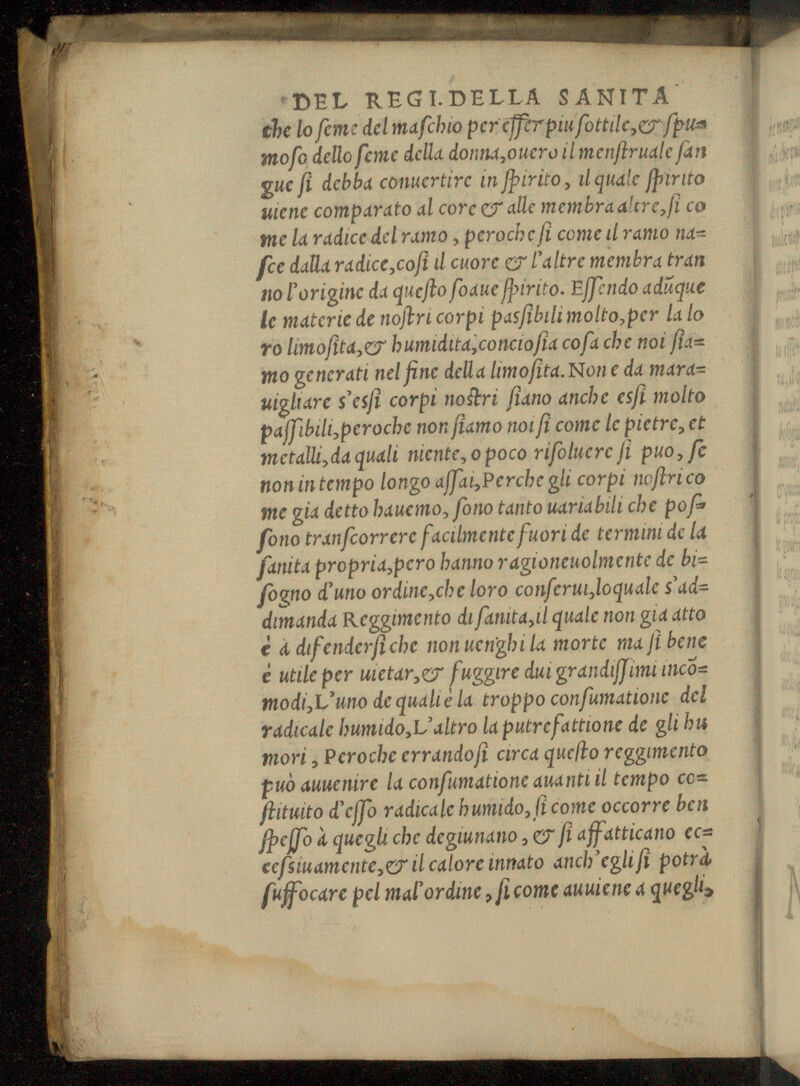 DEL REGI. DELLA SANITA
che lo ſeme del maſchio per eſſer piu ſottile, & ſpu=
moſo dello ſeme della donna, ouero il menſtruale ſan
gue ſi debba conuertire in ſpirito, il quale ſpirito
uiene comparato al core & alle membra altre, ſi co
me la radice del ramo, peroche ſi come il ramo na=
ſce dalla radice, coſi il cuore & l'altre membra tran
no l'origine da queſto ſoaue ſpirito. Eſſendo adūque
le materie de noſtri corpi pasſibili molto, per la lo
ro limoſita, & humidita, concioſia coſa che noi ſia=
mo generati nel fine della limoſita. Non e da mara=
uigliare s'esſi corpi noſtri ſiano anche esſi molto
paſſibili, peroche non ſiamo noi ſi come le pietre, et
metalli, da quali niente, o poco riſoluere ſi puo, ſe
non in tempo longo aſſai, Perche gli corpi noſtri co
me gia detto hauemo, ſono tanto uariabili che poſ=
ſono tranſcorrere facilmente fuori de termini de la
ſanita propria, pero hanno ragioneuolmente de bi=
ſogno d'uno ordine, che loro conſerui, loquale s'ad=
dimanda Reggimento di ſanita, il quale non gia atto
è à difenderſi che non uenghi la morte ma ſi bene
è utile per uietar, & fuggire dui grandiſſimi incō=
modi, L'uno de quali è la troppo conſumatione del
radicale humido, L'altro la putrefattione de gli hu
mori, Peroche errandoſi circa queſto reggimento
può auuenire la conſumatione auanti il tempo co=
ſtituito d'eſſo radicale humido, ſi come occorre ben
ſpeſſo à quegli che degiunano, & ſi affatticano ec=
ceſsiuamente, & il calore innato anch'egli ſi potrà
ſuffocare pel mal'ordine, ſi come auuiene a quegli,